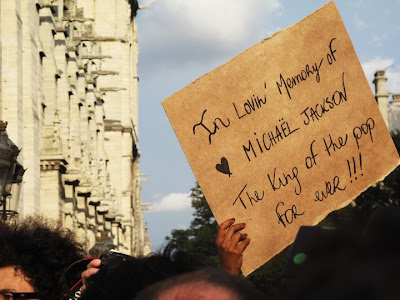 In Lovin' Memory of
MICHAËL JACKSON
The King of the pop
FOR ever!!!